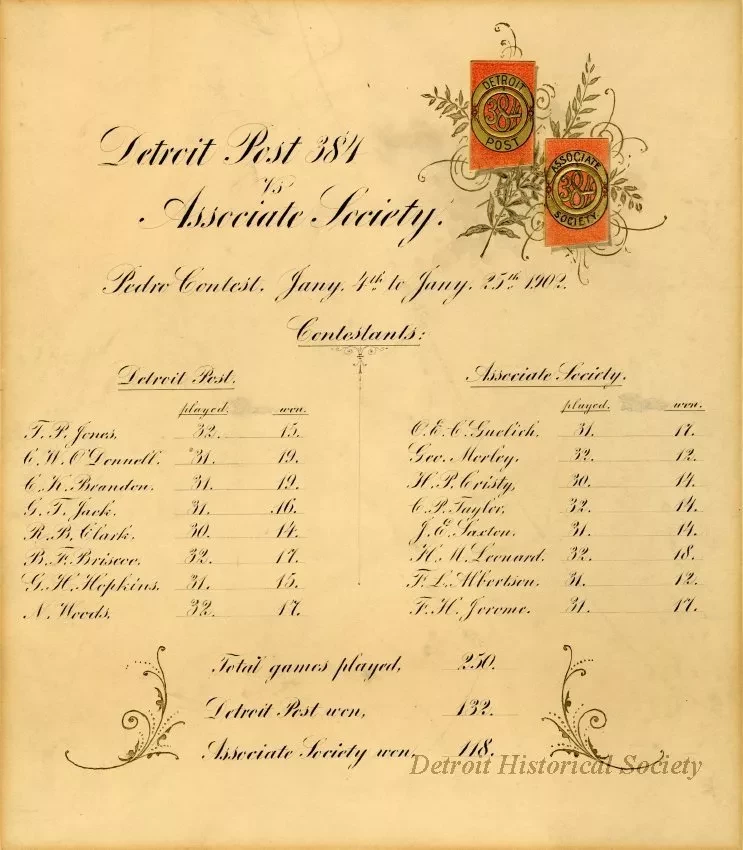 DETROIT
384
POST
ASSOCIATE
384
SOCIETY
Detroit Post 384
vs
Associate Society.
Pedro Contest. Jany. 4th to Jany. 25th 1902.
Contestants:
Detroit Post.
played. won.
T. P. Jones. 32. 15.
C. W. O'Donnell. 31. 19.
C. K. Brandon. 31. 19.
G. T. Jack. 31. 16.
R. B. Clark. 30. 14.
B. F. Briscoe. 32. 17.
G. H. Hopkins. 31. 15.
N. Woods. 32. 17.
Associate Society.
played. won.
O. E. C. Guelich. 31. 17.
Geo. Morley. 32. 12.
H. P. Cristy, 30. 14.
C. P. Taylor. 32. 14.
J. E. Saxton. 31. 14.
H. M. Leonard. 32. 18.
F. L. Albertson. 31. 12.
F. H. Jerome. 31. 17.
Total games played, 250.
Detroit Post won, 132.
Associate Society won, 118.
Detroit Historical Society